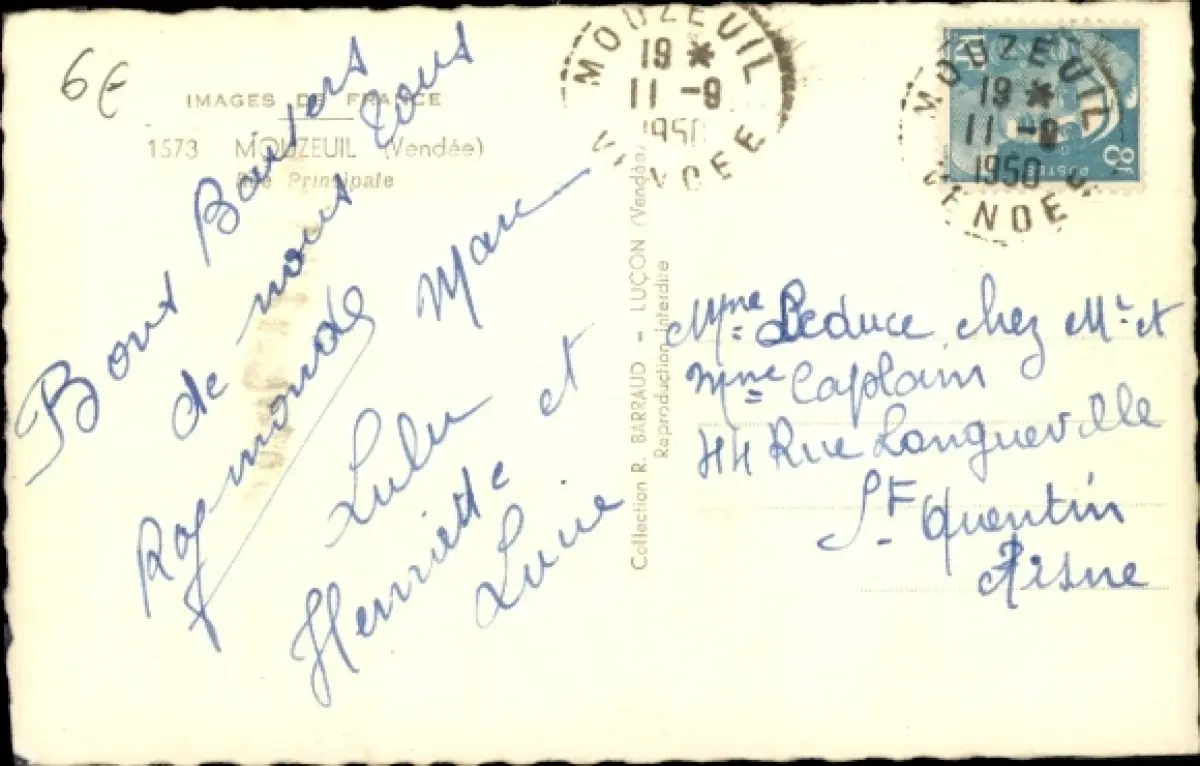 6€
IMAGES DE FRANCE
1573 MOUZEUIL (Vendée)
Rue Principale
Bons Baisers
de nous tous
Raymonde Marc
Lulu et
Henriette
Lucie
Collection R. BARRAUD - LUÇON (Vendée)
Reproduction interdite
MOUZEUIL
19 *
11 - 9
1950
VENDEE
MOUZEUIL
19 *
11 - 9
1950
VENDEE
8F
POSTES
Mme Leduce chez Mr et
Mme Caplain
44 Rue Longueville
St Quentin
Aisne